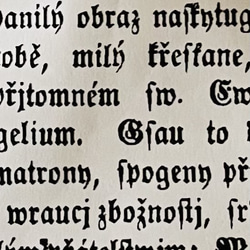 danilý obraz naſkytug
tobě, milý křeſťane,
přjtomném ſw. Ew
gelium. Gſau to
matrony, ſpogeny př
wraucj zbožnoſtj, ſr